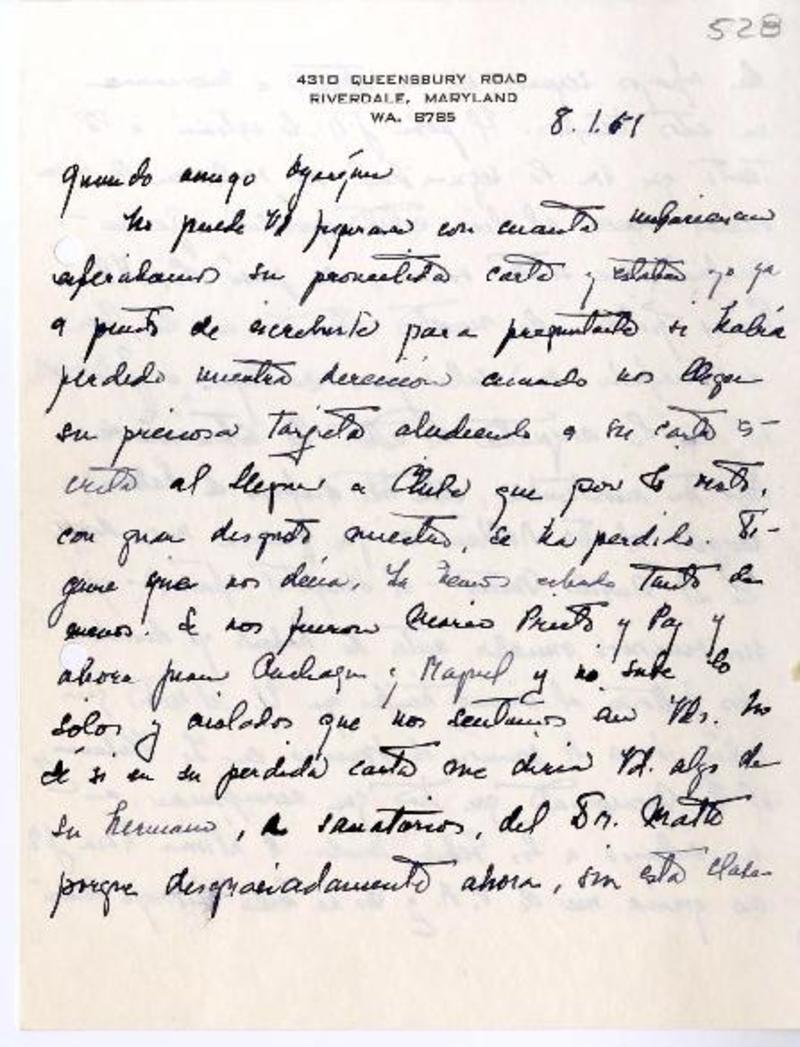 528
4310 QUEENSBURY ROAD
RIVERDALE, MARYLAND
WA. 8785
8.1.51
Querido amigo Oyarzún
No puede Vd figurarse con cuanta impaciencia
esperábamos su prometida carta y estaba yo ya
a punto de escribirle para preguntarle si había
perdido nuestra dirección cuando nos llega
su preciosa tarjeta aludiendo a su carta es-
crita al llegar a Chile que por lo visto,
con gran disgusto nuestro, se ha perdido. Dí-
game que nos decía. Le hemos echado tanto de
menos. Se nos fueron Mario Prieto y Paz y
ahora Juan y Raquel y no sabe lo
solos y aislados que nos sentimos sin Vds. No
sé si en su perdida carta me diría Vd. algo de
su hermano, de sanatorios, del Dr. Matte
porque desgraciadamente ahora, sin esta clase